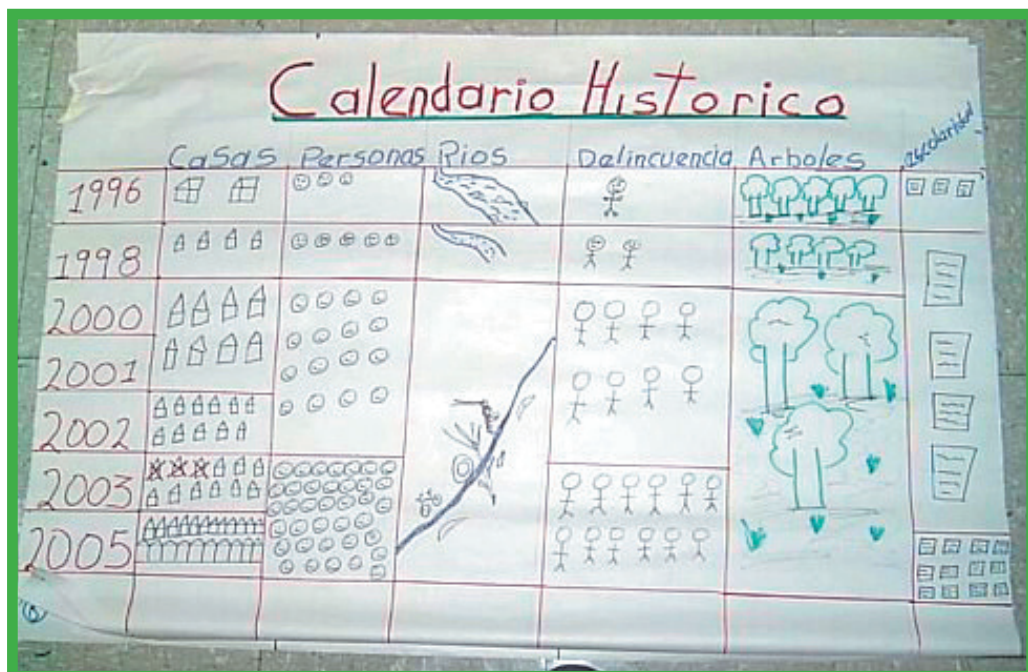 Calendario Historico
Casas Personas Rios Delincuencia Arboles escolaridad
1996
1998
2000
2001
2002
2003
2005